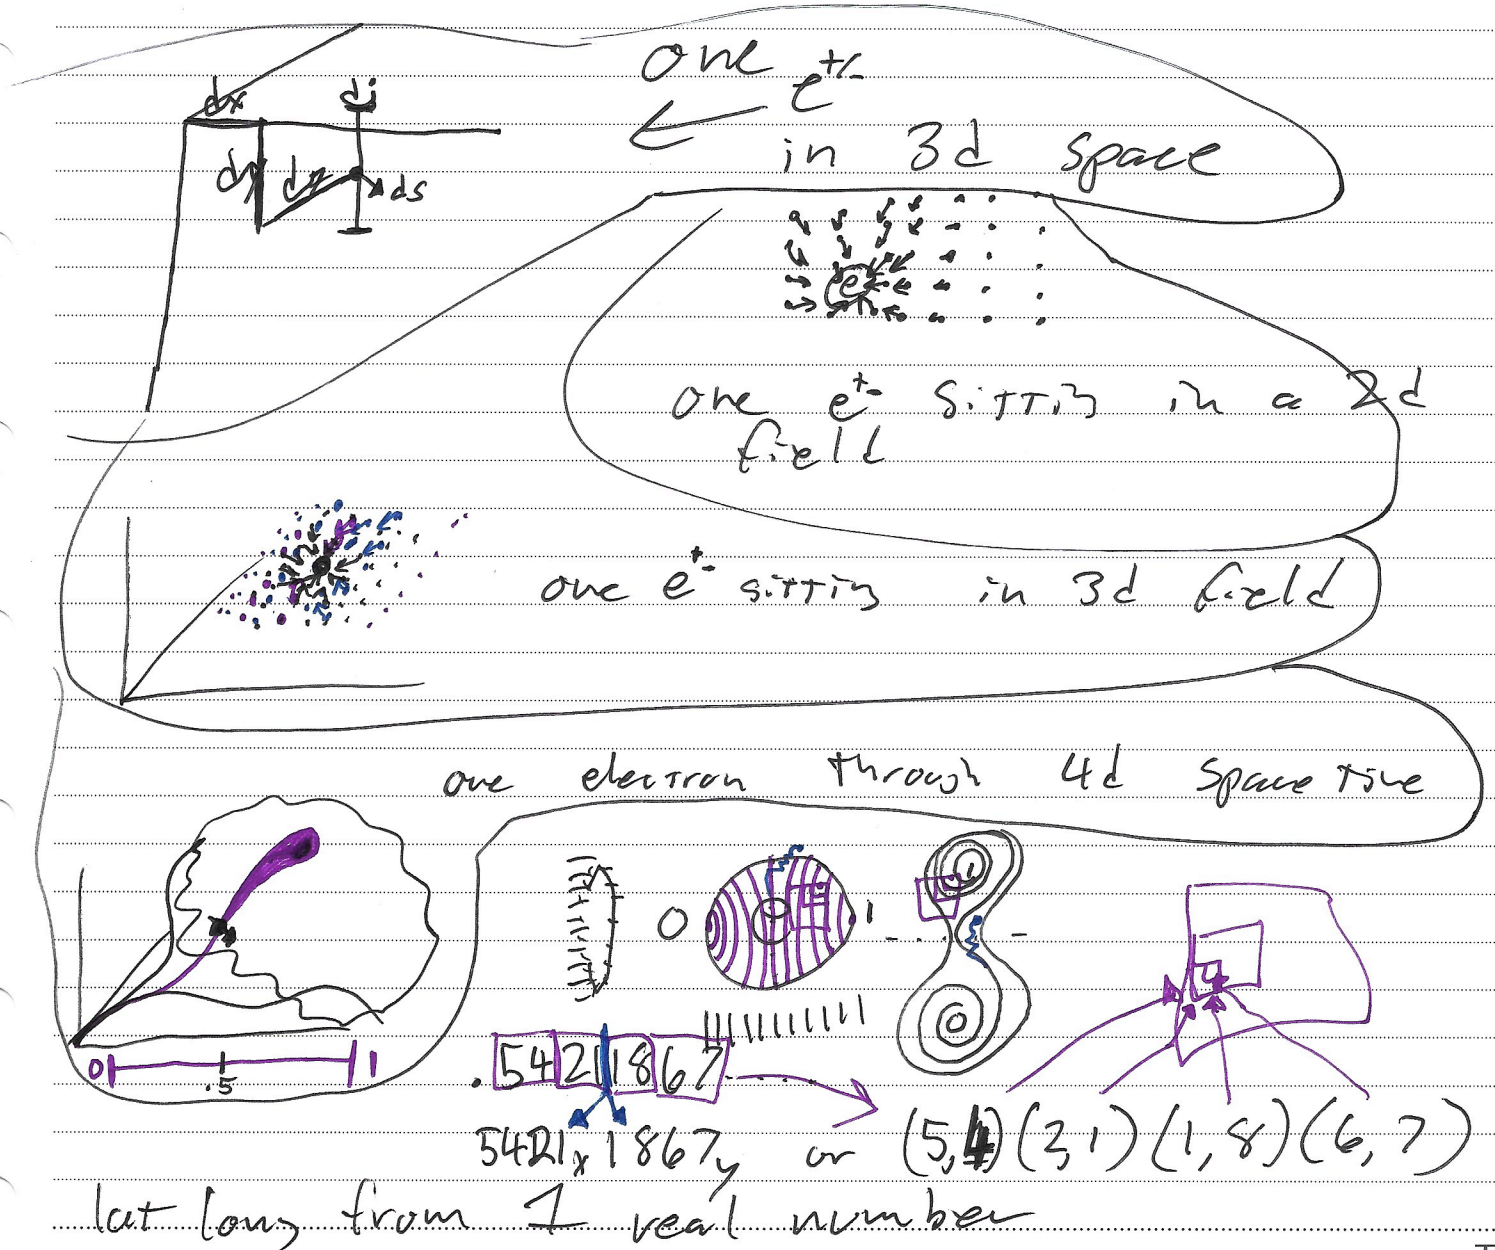 one
e+/-
in 3d space
dx
dj
dy
dz
ds
e
one e+- sitting in a 2d
field
one e+- sitting in 3d field
one electron through 4d space time
0
1
0
.5
1
.54211867.......
5421x 1867y or (5,4)(2,1)(1,8)(6,7)
lat long from 1 real number